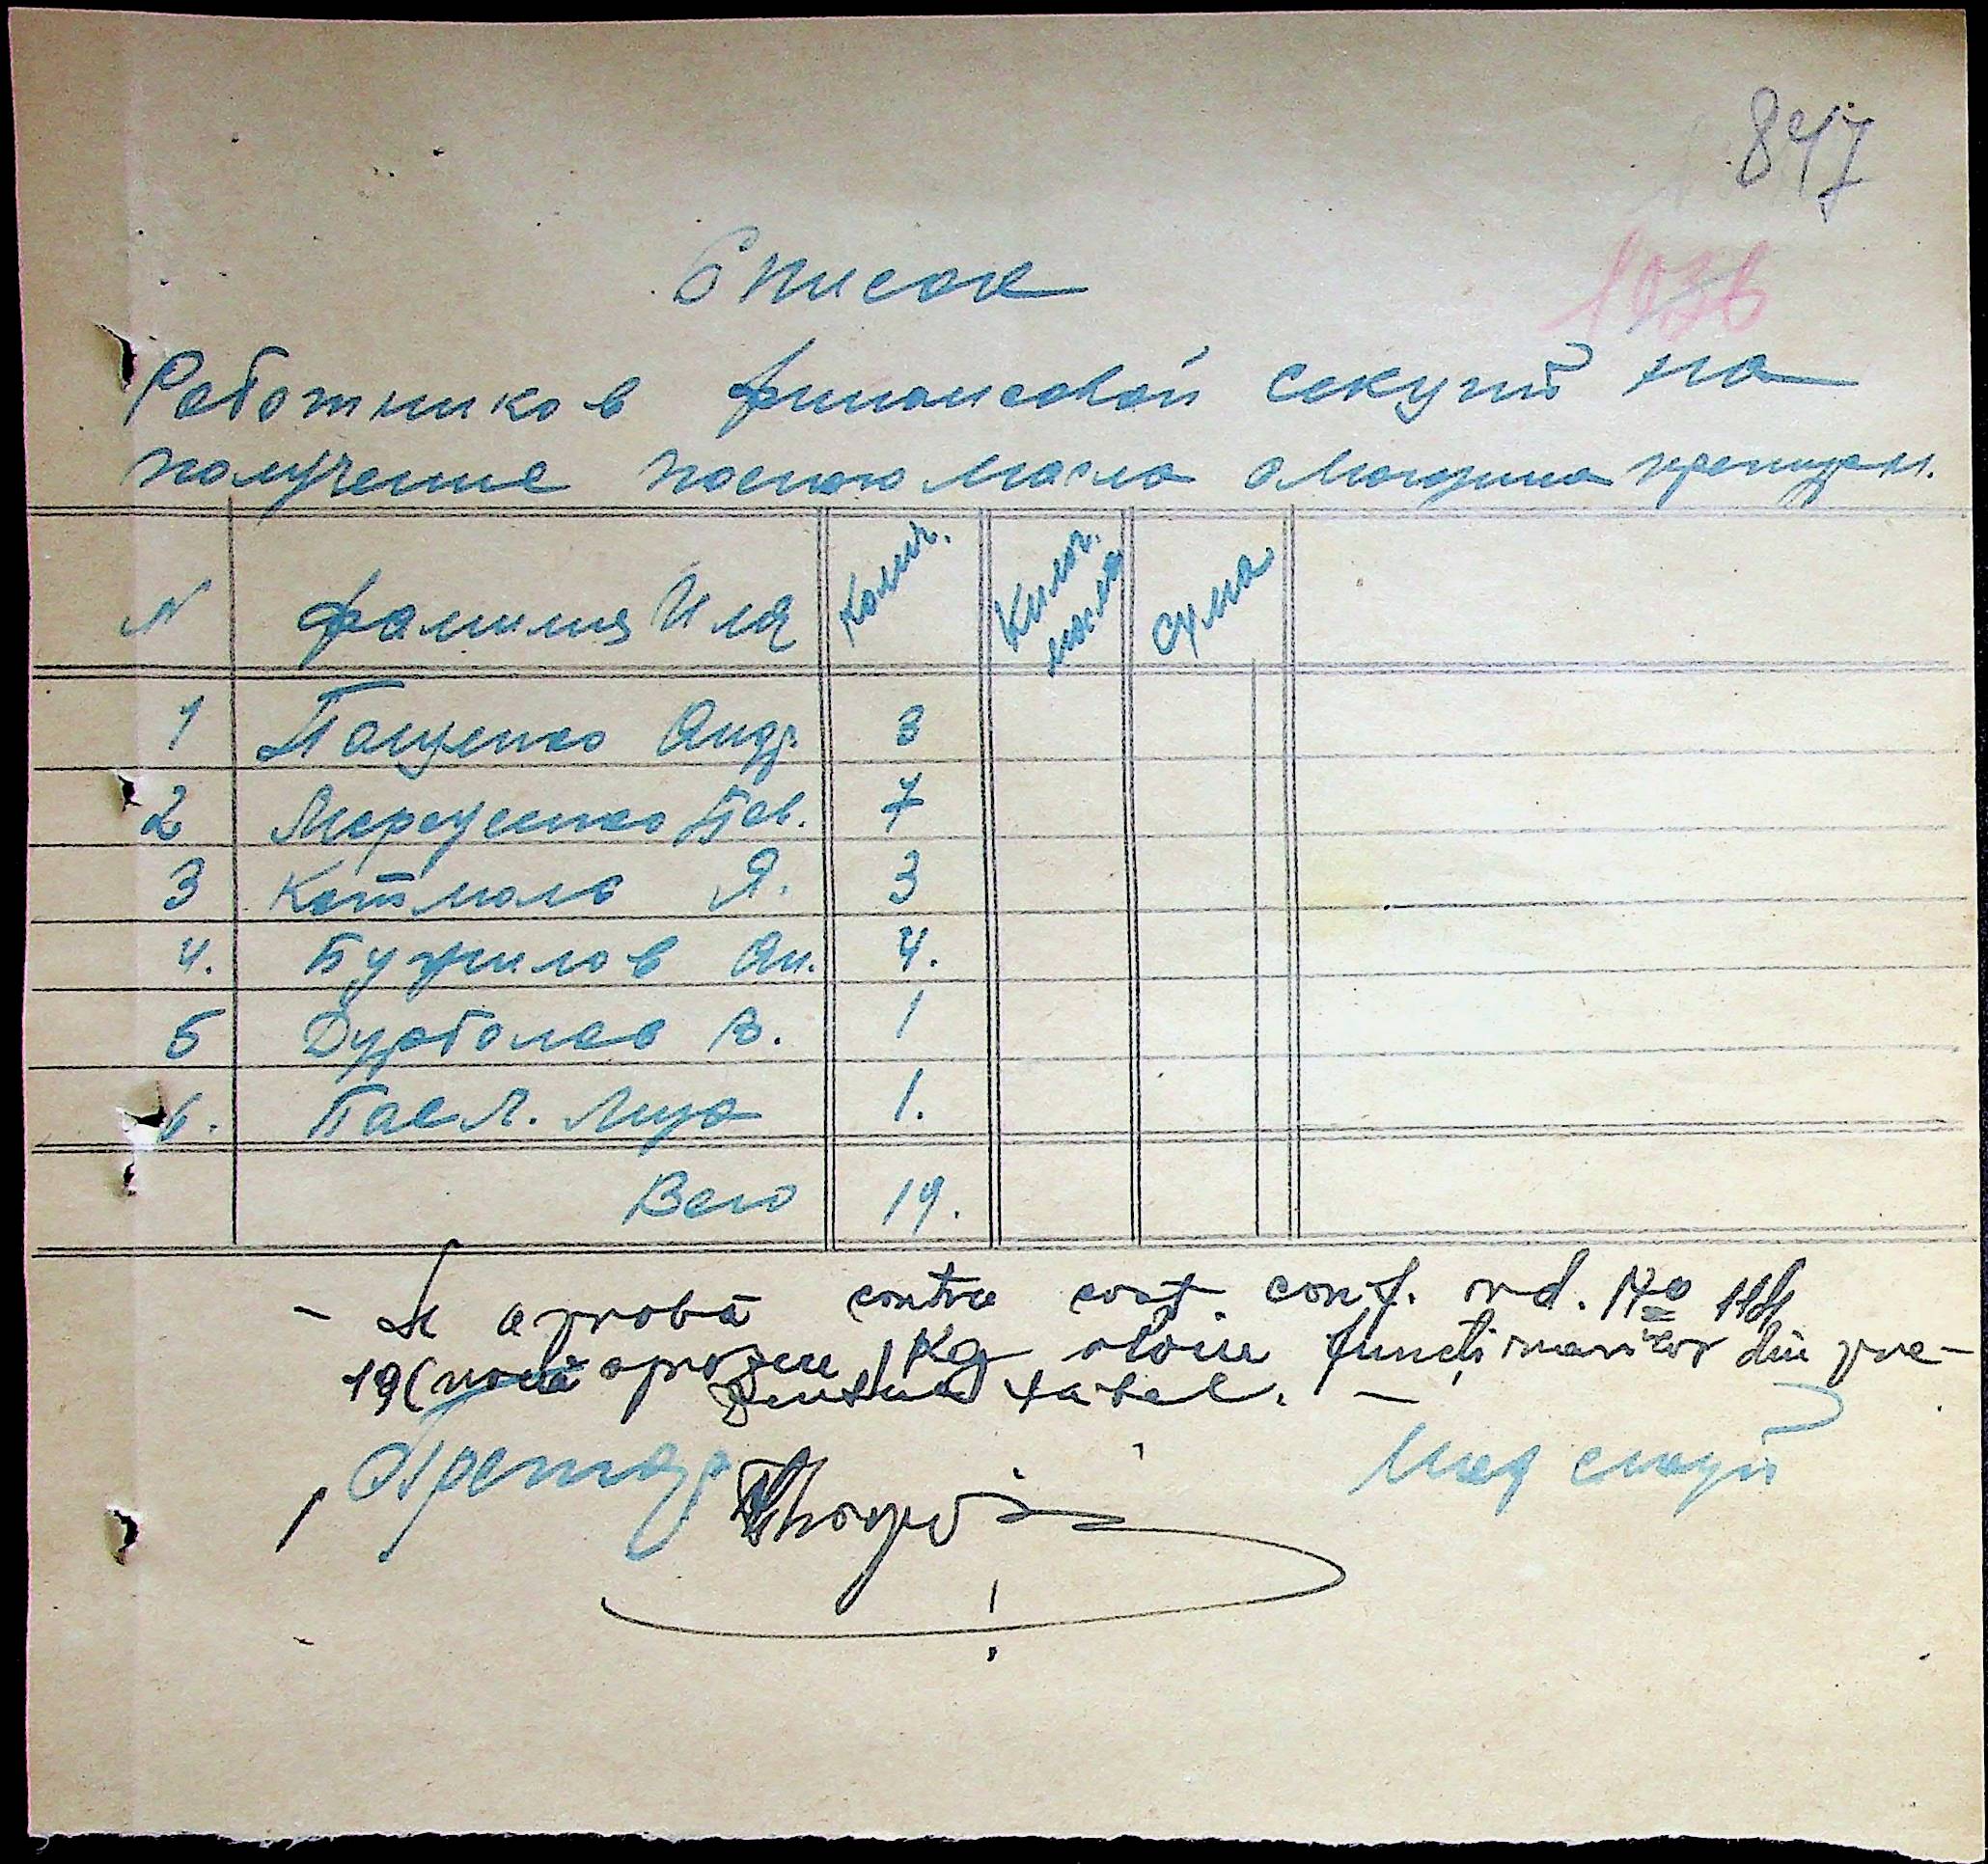 847
1036
Список
Работников финансовой секуий на
получение посного масло
N фамилия Имя Колич. Килог. масла сума
1 Пащенко Андр. 3
2 Марценко Пав. 7
3 Котмало Я. 3
4. Бужилов Ан. 4.
5 Дурболов В. 1
6. Павл. Лиза 1.
Всго 19.
- Se aprobă contra cost conf. ord. No
19( Kg oloiu funcționarilor din pre-
zentul tabel. -
Претор
Шеф